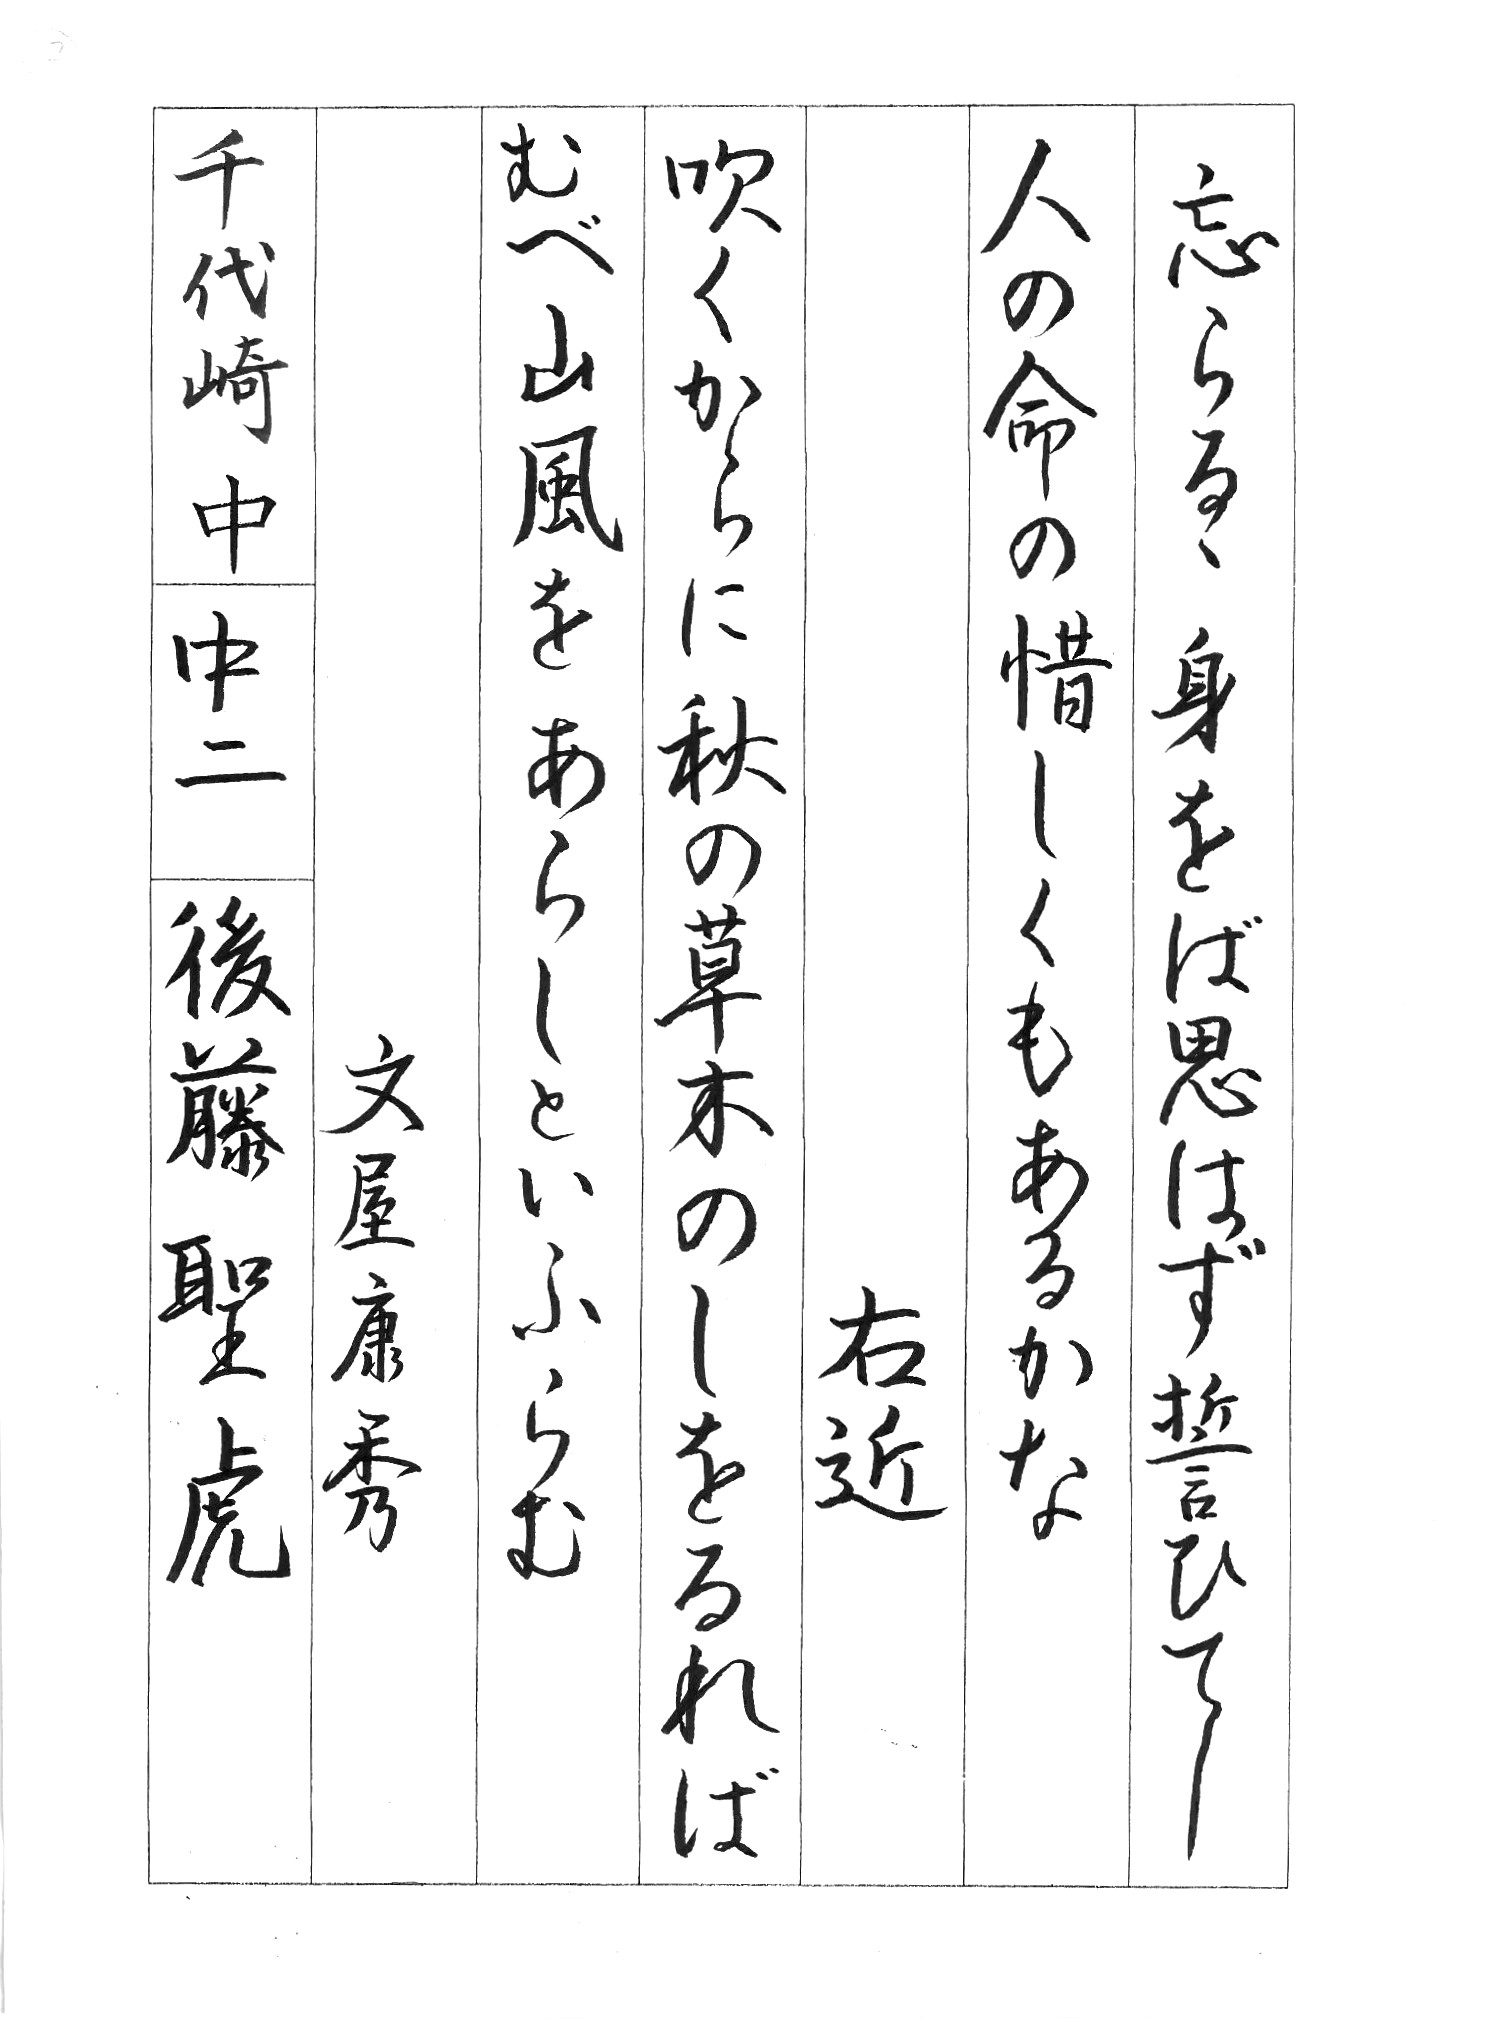 忘らるゝ身をば思はず誓ひてし
人の命の惜しくもあるかな
右近
吹くからに秋の草木のしをるれば
むべ山風をあらしといふらむ
文屋康秀
千代崎中 中二 後藤聖虎